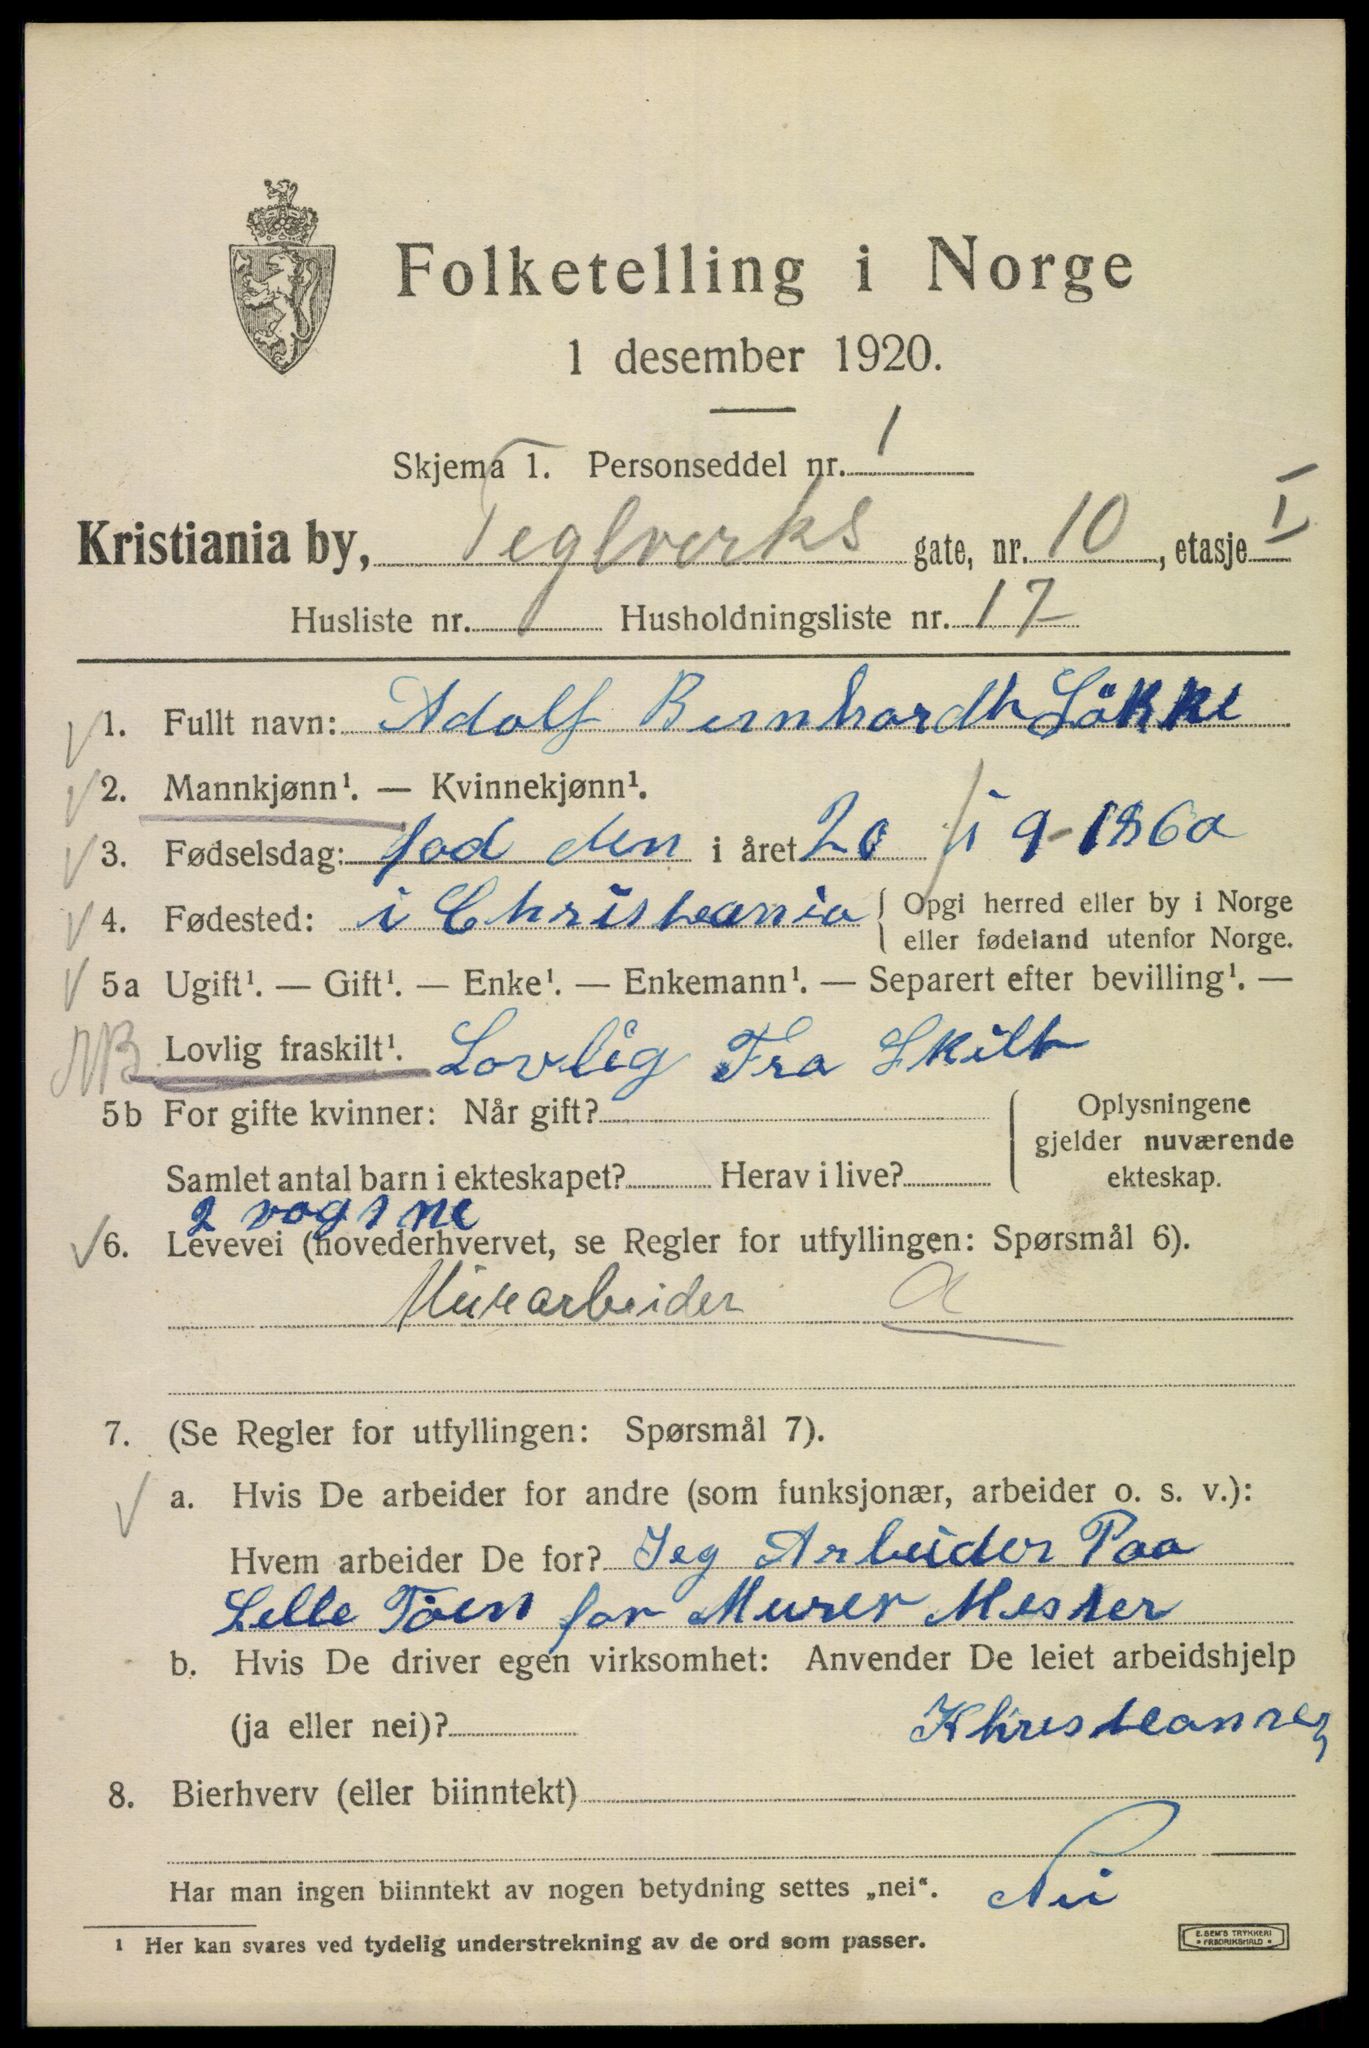 Folketelling i Norge
1 desember 1920.
Skjema 1. Personseddel nr. 1
Kristiania by, Teglverks gate, nr. 10, etasje I
Husliste nr. Husholdningsliste nr. 17
1. Fullt navn: Adolf Bernhardh Lökke
2. Mannkjønn¹. — Kvinnekjønn¹.
3. Fødselsdag: fød den i året 20/9-1860
4. Fødested: i Christeania { Opgi herred eller by i Norge
eller fødeland utenfor Norge.
5a Ugift¹. — Gift¹. — Enke¹. — Enkemann¹. — Separert efter bevilling¹. —
NB Lovlig fraskilt¹. Lovlig Fra Skilt
5b For gifte kvinner: Når gift? Oplysningene
gjelder nuværende
ekteskap.
Samlet antal barn i ekteskapet? Herav i live?
2 vogsne
6. Levevei (hovederhvervet, se Regler for utfyllingen: Spørsmål 6).
Murarbeider a
7. (Se Regler for utfyllingen: Spørsmål 7).
a. Hvis De arbeider for andre (som funksjonær, arbeider o. s. v.):
Hvem arbeider De for? Jeg Arbeider Paa
Lelle Töen for Murer Mester
b. Hvis De driver egen virksomhet: Anvender De leiet arbeidshjelp
(ja eller nei)? Khristeansen
8. Bierhverv (eller biinntekt)
Har man ingen biinntekt av nogen betydning settes „nei“. Nei
¹ Her kan svares ved tydelig understrekning av de ord som passer.
E. SEM'S TRYKKERI
FREDRIKSHALD